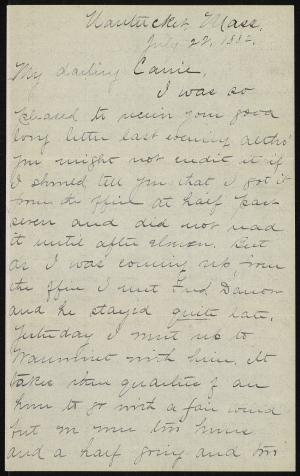 Nantucket, Mass.
July 22, 1882.
My darling Carrie,
I was so
pleased to receive your good
long letter last evening altho'
you might not credit it if
I should tell you that I got it
from the office at half past
seven and did not read
it until after eleven. But
as I was coming up from
the office I met Fred
and he stayed quite late.
Yesterday I went up to
Wauwinet with him. It
takes three quarters of an
hour to go with a fair wind
but we were two hours
and a half going and two